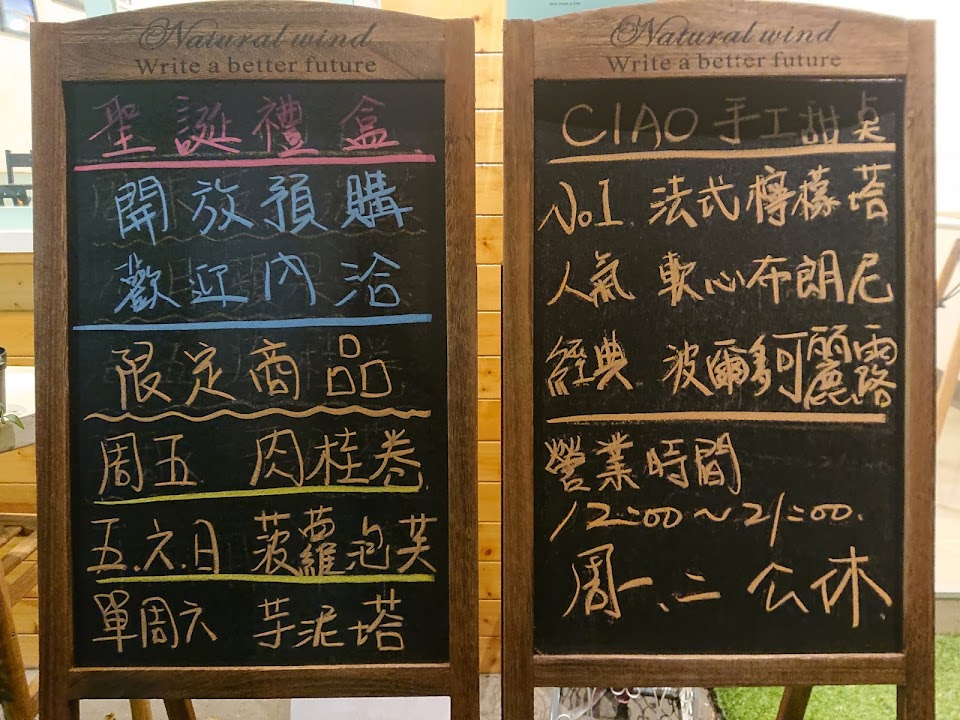 Natural wind
Write a better future
聖誕禮盒
開放預購
歡迎內洽
限定商品
周五 肉桂卷
五.六.日 菠蘿泡芙
單周六 芋泥塔
Natural wind
Write a better future
CIAO 手工甜點
No.1 法式檸檬塔
人氣 軟心布朗尼
經典 波爾多可麗露
營業時間
12:00~21:00.
周一、二 公休